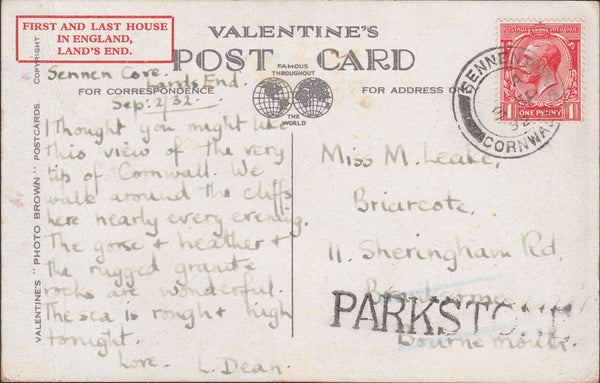 FIRST AND LAST HOUSE
IN ENGLAND,
LAND'S END.
COPYRIGHT.
VALENTINE'S "PHOTO BROWN" POSTCARDS.
VALENTINE'S
POST CARD
FAMOUS
THROUGHOUT
THE
WORLD
FOR CORRESPONDENCE
FOR ADDRESS ON
Sennen Cove.
Lands End.
Sep: 2/32.
I thought you might like
this view of the very
tip of Cornwall. We
walk around the cliffs
here nearly every evening.
The gorse & heather &
the rugged granite
rocks are wonderful.
The sea is rough & high
tonight.
Love. L. Dean.
POSTAGE REVENUE
1 ONE PENNY 1
SENNEN
CORNWALL
Miss M. Leake,
Briarcote,
11. Sheringham Rd.
PARKSTONE
Bournemouth.